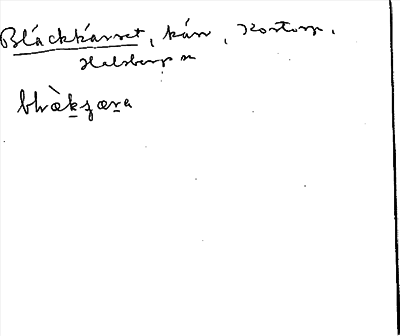 Bläckkärret, kärr, Kortorp,
Halsberg sn
blæ̀kçæra